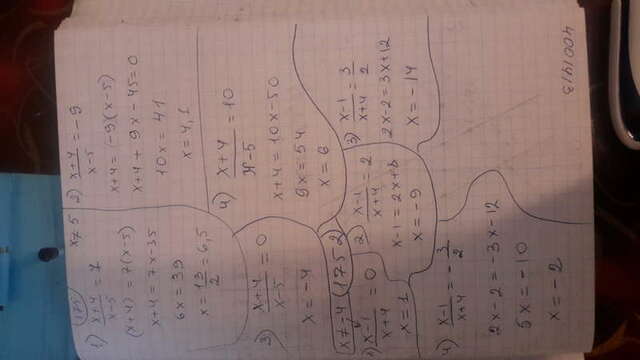 1751 x≠5
1) x+4/x-5 = 7
(x+4) = 7(x-5)
x+4 = 7x-35
6x = 39
x = 13/2 = 6,5
2) x+4/x-5 = -9
x+4 = (-9)(x-5)
x+4+9x-45=0
10x = 41
x = 4,1
3) x+4/x-5 = 0
x = -4
4) x+4/x-5 = 10
x+4 = 10x-50
9x = 54
x = 6
x≠-4 1752
1) x-1/x+4 = 0
x = 1
2) x-1/x+4 = 2
x-1 = 2x+8
x = -9
3) x-1/x+4 = 3/2
2x-2 = 3x+12
x = -14
4) x-1/x+4 = -3/2
2x-2 = -3x-12
5x = -10
x = -2